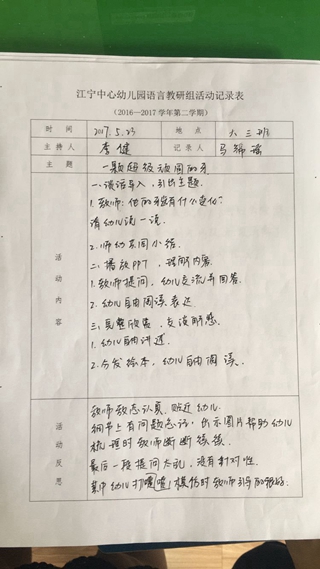 江宁中心幼儿园语言教研组活动记录表
（2016—2017学年第二学期）
时 间 2017.5.23 地 点 大三班
主持人 李健 记录人 马锦瑶
主 题 一颗超级顽固的牙
活动内容
一、谈话导入，引出主题.
1. 教师：他的牙齿有什么变化？
请幼儿说一说.
2. 师幼共同小结.
二、播放PPT，理解内容.
1. 教师提问，幼儿交流并回答.
2. 幼儿自由阅读、表达
三、完整欣赏，交流感想.
1. 幼儿自由讲述.
2. 分发绘本，幼儿自由阅读.
活动反思
教师教态认真，贴近幼儿.
细节上有问题忘记，出示图片帮助幼儿
梳理时教师断断续续
最后一段提问太乱，没有针对性.
集中幼儿打喷嚏模仿时教师引导的很好.